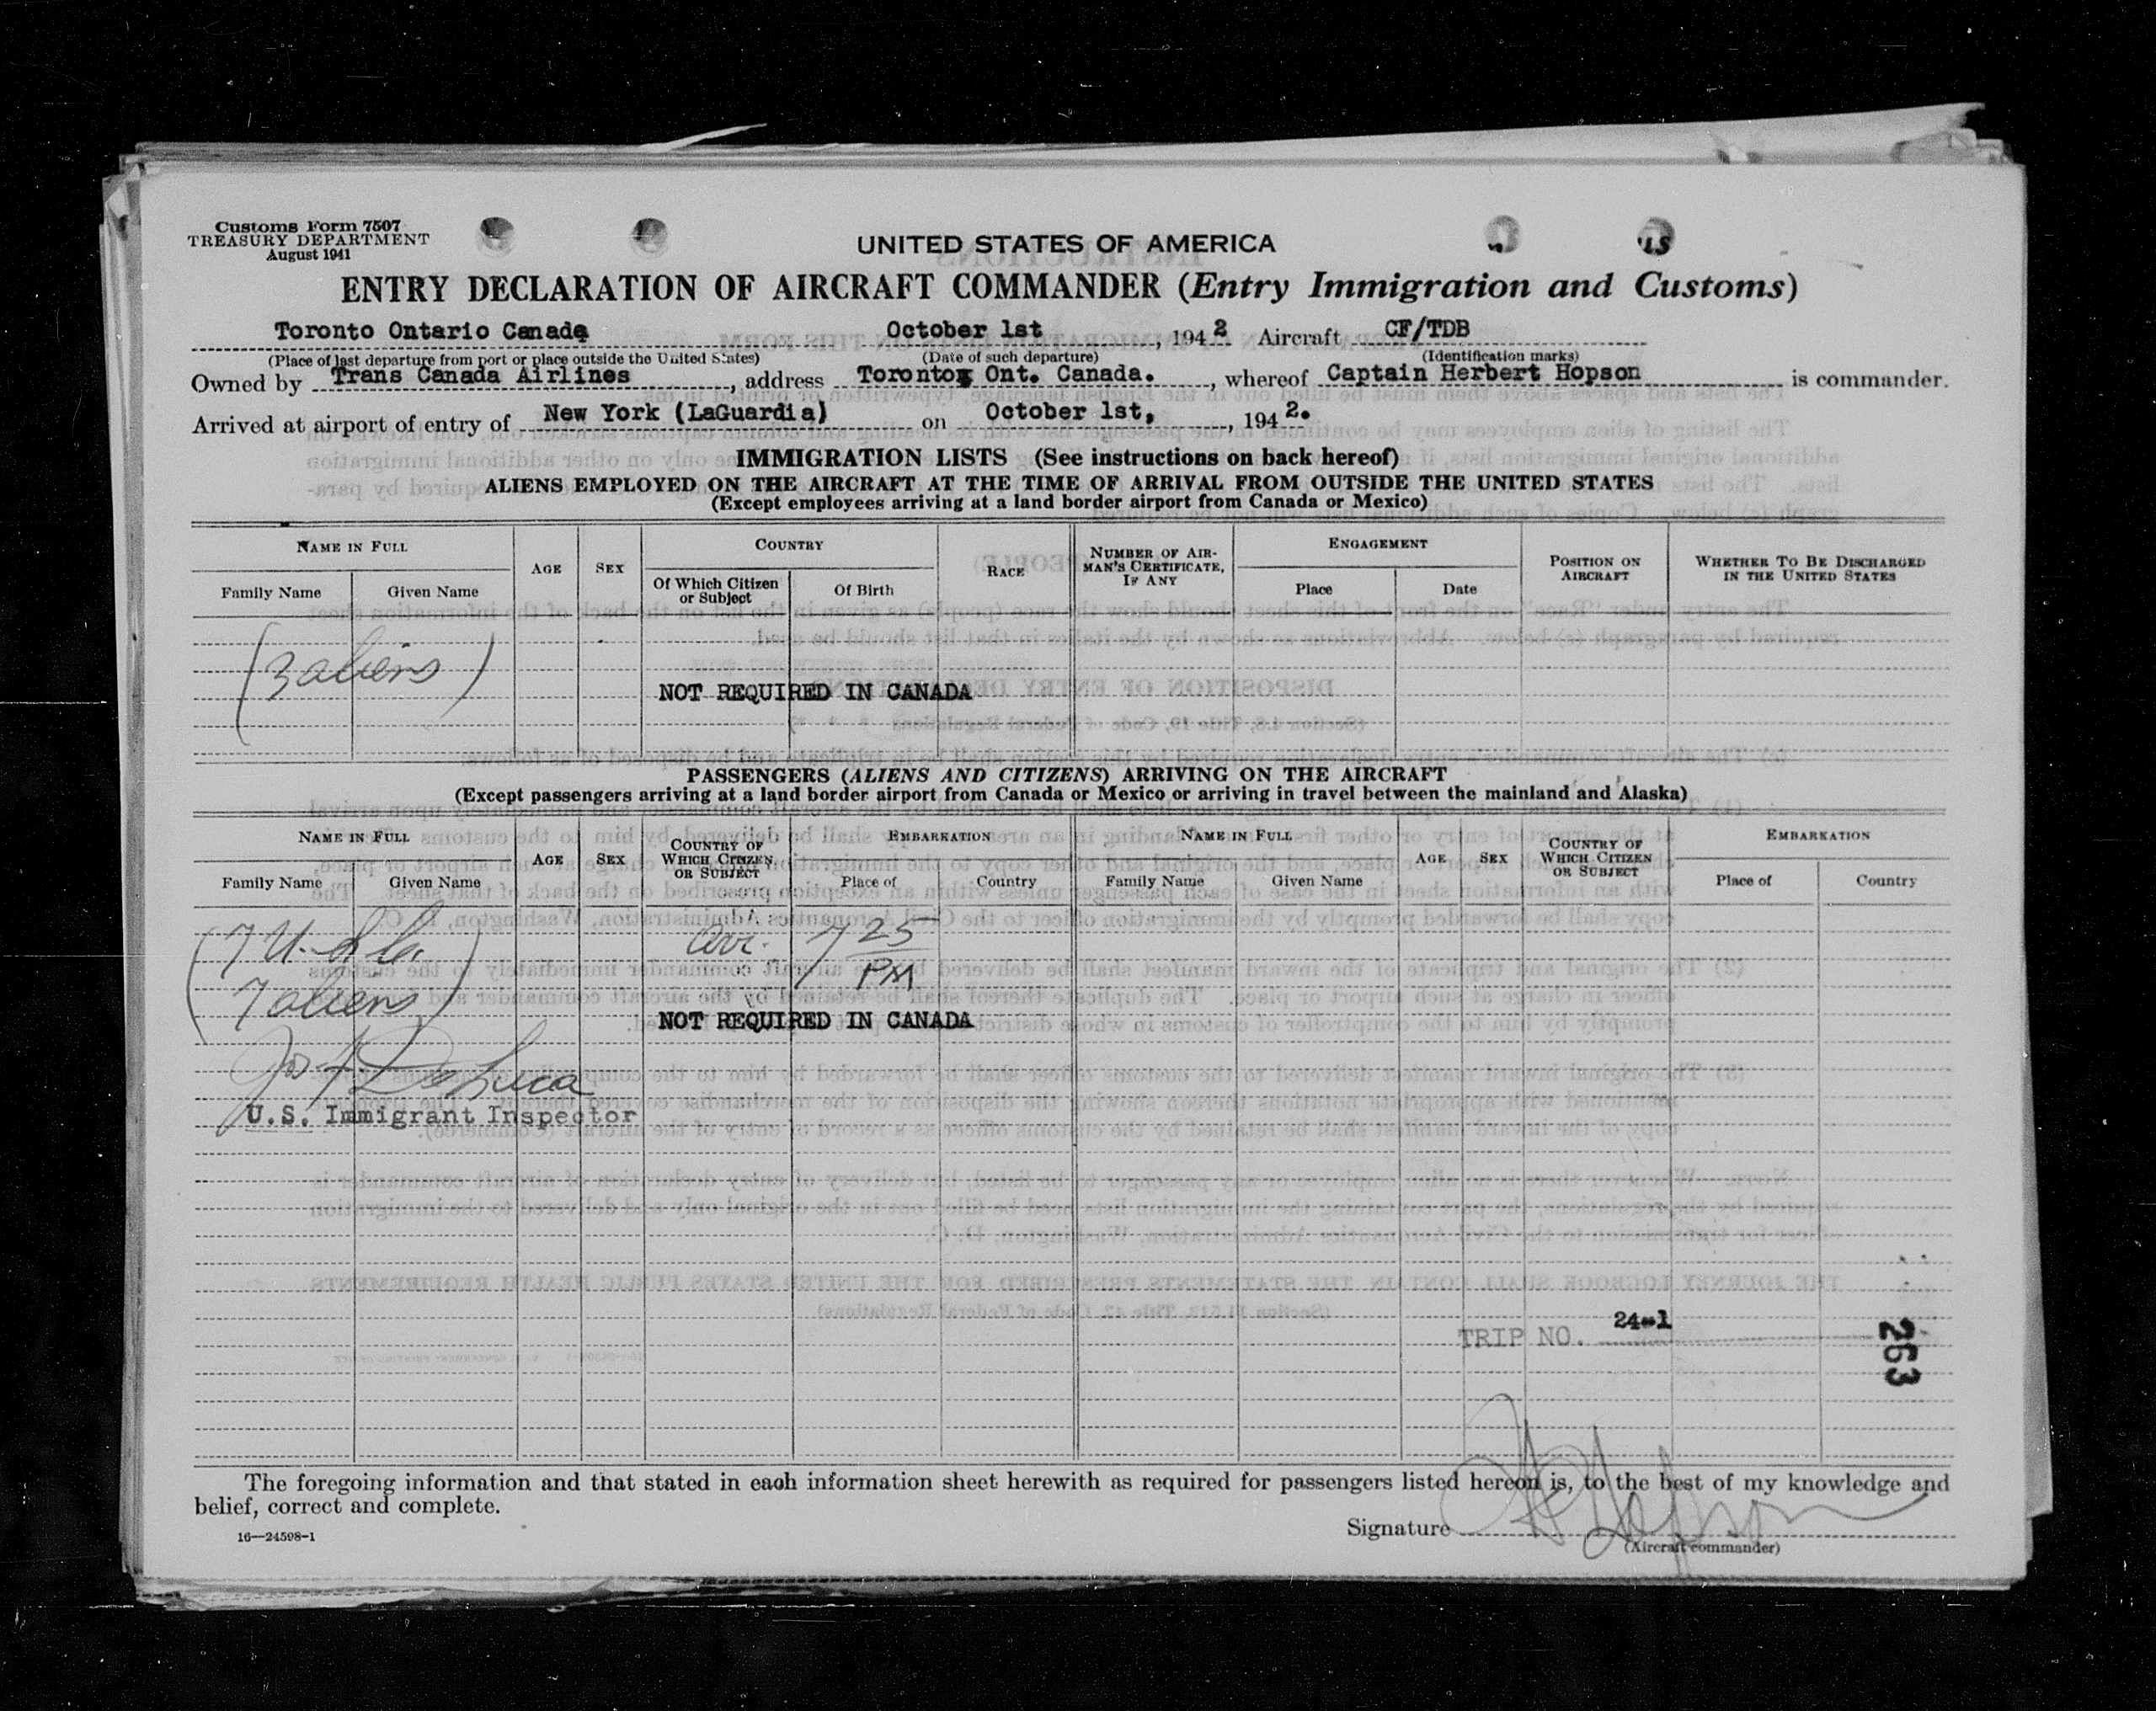 Customs Form 7507
TREASURY DEPARTMENT
August 1941
UNITED STATES OF AMERICA
ENTRY DECLARATION OF AIRCRAFT COMMANDER (Entry Immigration and Customs)
Toronto Ontario Canada October 1st, 1942 Aircraft CF/TDB
(Place of last departure from port or place outside the United States) (Date of such departure) (Identification marks)
Owned by Trans Canada Airlines, address Toronto, Ont. Canada., whereof Captain Herbert Hopson is commander.
Arrived at airport of entry of New York (LaGuardia) on October 1st, 1942.
IMMIGRATION LISTS (See instructions on back hereof)
ALIENS EMPLOYED ON THE AIRCRAFT AT THE TIME OF ARRIVAL FROM OUTSIDE THE UNITED STATES
(Except employees arriving at a land border airport from Canada or Mexico)
NAME IN FULL AGE SEX COUNTRY RACE NUMBER OF AIRMAN'S CERTIFICATE, IF ANY ENGAGEMENT POSITION ON AIRCRAFT WHETHER TO BE DISCHARGED IN THE UNITED STATES
Family Name Given Name Of Which Citizen or Subject Of Birth Place Date
(3 aliens)
NOT REQUIRED IN CANADA
PASSENGERS (ALIENS AND CITIZENS) ARRIVING ON THE AIRCRAFT
(Except passengers arriving at a land border airport from Canada or Mexico or arriving in travel between the mainland and Alaska)
NAME IN FULL AGE SEX COUNTRY OF WHICH CITIZEN OR SUBJECT EMBARKATION NAME IN FULL AGE SEX COUNTRY OF WHICH CITIZEN OR SUBJECT EMBARKATION
Family Name Given Name Place of Country Family Name Given Name Place of Country
Arr. 7 25 PM
7 aliens)
NOT REQUIRED IN CANADA
Jos A DeLuca
U.S. Immigrant Inspector
TRIP NO. 24-1
263
The foregoing information and that stated in each information sheet herewith as required for passengers listed hereon is, to the best of my knowledge and
belief, correct and complete.
16—24598-1
Signature H Hopson
(Aircraft commander)